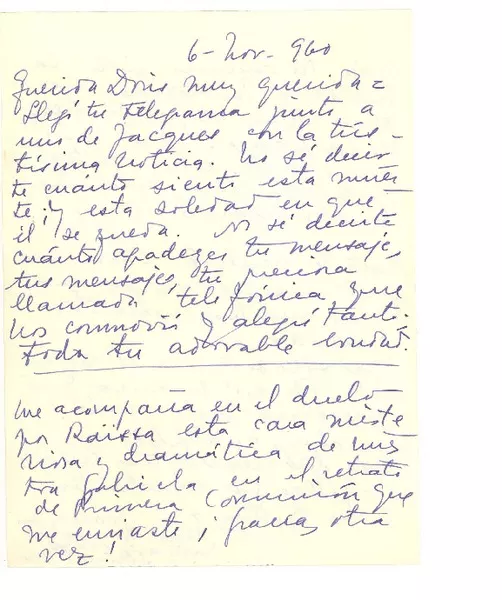 6 - Nov. - 960
Querida Doris muy querida =
Llegó tu telegrama junto a
uno de Jacques con la tris-
tísima noticia. No sé decir
te cuánto siento esta muer
te; y esta soledad en que
él se queda. No sé decirte
cuánto agradezco tu mensaje,
tus mensajes, tu preciosa
llamada telefónica que
nos conmovió y alegró tanto.
Toda tu adorable bondad.
Me acompaña en el duelo
por Raïssa esta cara miste
riosa y dramática de nues
tra Gabriela en el retrato
de Primera Comunión que
me enviaste ¡gracias, otra
vez!